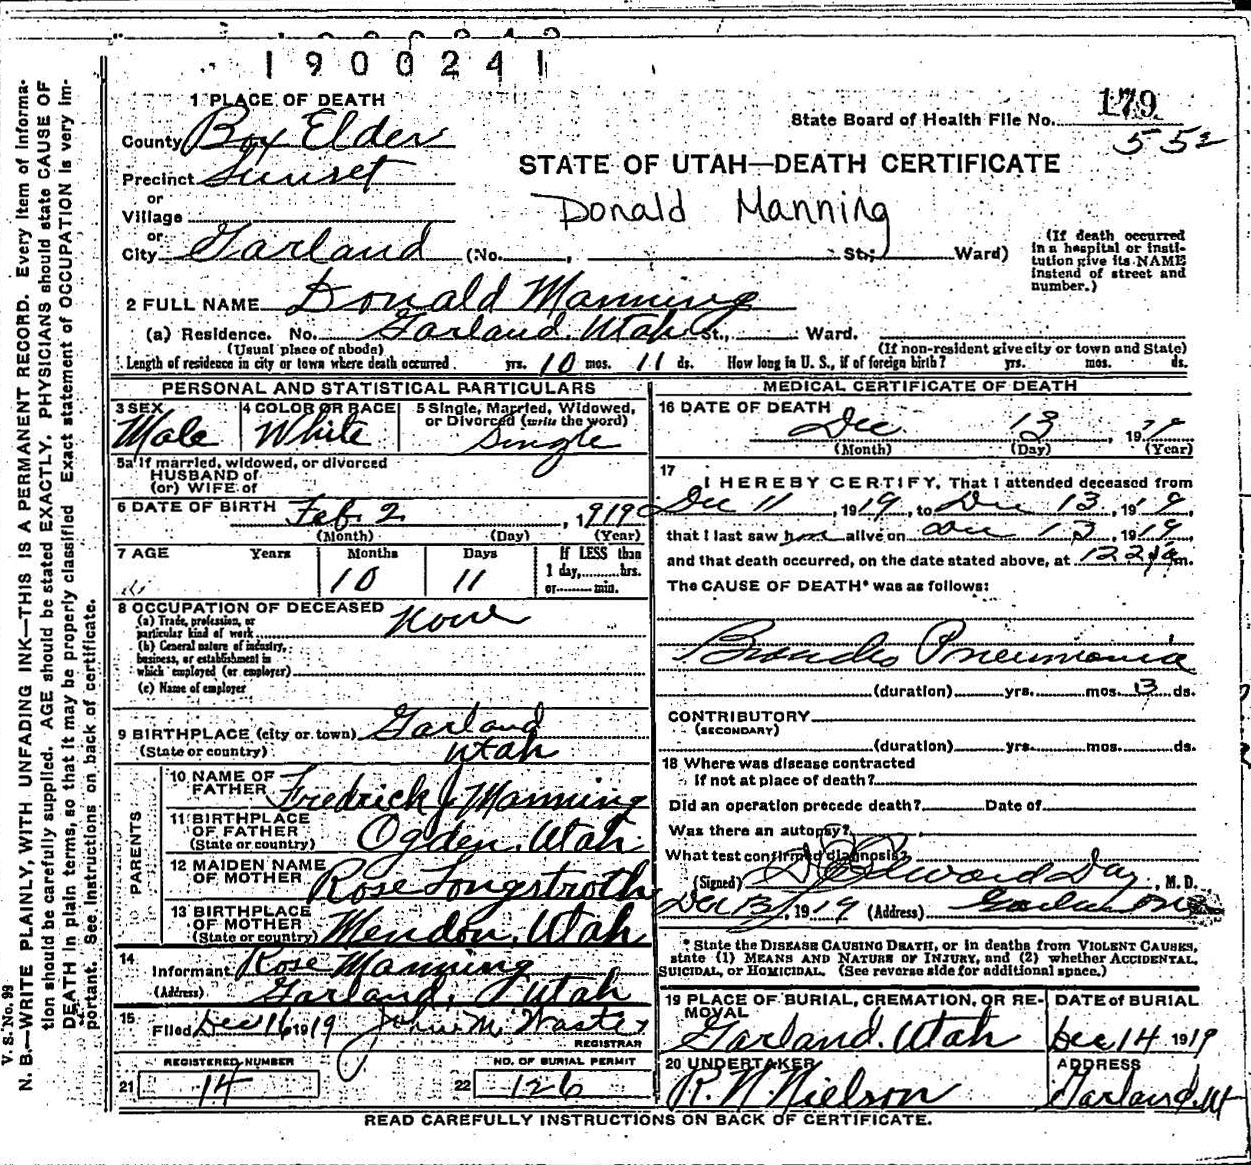 1900241
1 PLACE OF DEATH
179
State Board of Health File No.
552
County Box Elder
STATE OF UTAH—DEATH CERTIFICATE
Precinct Sunset
or
Village
Donald Manning
or
City Garland (No. , St; Ward)
(If death occurred
in a hospital or insti-
tution give its NAME
instead of street and
number.)
2 FULL NAME Donald Manning
(a) Residence. No. Garland. Utah St., Ward.
(Usual place of abode) (If non-resident give city or town and State)
Length of residence in city or town where death occurred yrs. 10 mos. 11 ds. How long in U. S., if of foreign birth? yrs. mos. ds.
PERSONAL AND STATISTICAL PARTICULARS
3 SEX Male
4 COLOR OR RACE White
5 Single, Married, Widowed,
or Divorced (write the word)
Single
5a If married, widowed, or divorced
HUSBAND of
(or) WIFE of
6 DATE OF BIRTH Feb. 2, 1919
(Month) (Day) (Year)
7 AGE Years Months Days If LESS than
10 11 1 day, hrs.
or min.
8 OCCUPATION OF DECEASED None
(a) Trade, profession, or
particular kind of work
(b) General nature of industry,
business, or establishment in
which employed (or employer)
(c) Name of employer
9 BIRTHPLACE (city or town) Garland
(State or country) Utah
PARENTS
10 NAME OF
FATHER Fredrick J. Manning
11 BIRTHPLACE
OF FATHER
(State or country) Ogden, Utah.
12 MAIDEN NAME
OF MOTHER Rose Longstroth
13 BIRTHPLACE
OF MOTHER
(State or country) Mendon, Utah
14
Informant Rose Manning
(Address) Garland, Utah
15
Filed Dec 16 1919
REGISTRAR
REGISTERED NUMBER NO. OF BURIAL PERMIT
21 14 22 126
MEDICAL CERTIFICATE OF DEATH
16 DATE OF DEATH
Dec 13, 1919
(Month) (Day) (Year)
17
I HEREBY CERTIFY, That I attended deceased from
Dec 11, 1919, to Dec 13, 1919,
that I last saw him alive on Dec 13, 1919,
and that death occurred, on the date stated above, at m.
The CAUSE OF DEATH* was as follows:
Broncho Pneumonia
(duration) yrs. mos. 3 ds.
CONTRIBUTORY
(SECONDARY)
(duration) yrs. mos. ds.
18 Where was disease contracted
if not at place of death?
Did an operation precede death? Date of
Was there an autopsy?
What test confirmed diagnosis?
(Signed) Edward Day, M. D.
Dec 13, 1919 (Address) Garland
* State the DISEASE CAUSING DEATH, or in deaths from VIOLENT CAUSES,
state (1) MEANS AND NATURE OF INJURY, and (2) whether ACCIDENTAL,
SUICIDAL, or HOMICIDAL. (See reverse side for additional space.)
19 PLACE OF BURIAL, CREMATION, OR RE-
MOVAL
Garland. Utah
DATE of BURIAL
Dec 14 1919
20 UNDERTAKER
R. N. Nielson
ADDRESS
Garland, Ut
READ CAREFULLY INSTRUCTIONS ON BACK OF CERTIFICATE.
V. S. No. 99
N. B.—WRITE PLAINLY, WITH UNFADING INK—THIS IS A PERMANENT RECORD. Every item of informa-
tion should be carefully supplied. AGE should be stated EXACTLY. PHYSICIANS should state CAUSE OF
DEATH in plain terms, so that it may be properly classified. Exact statement of OCCUPATION is very im-
portant. See instructions on back of certificate.